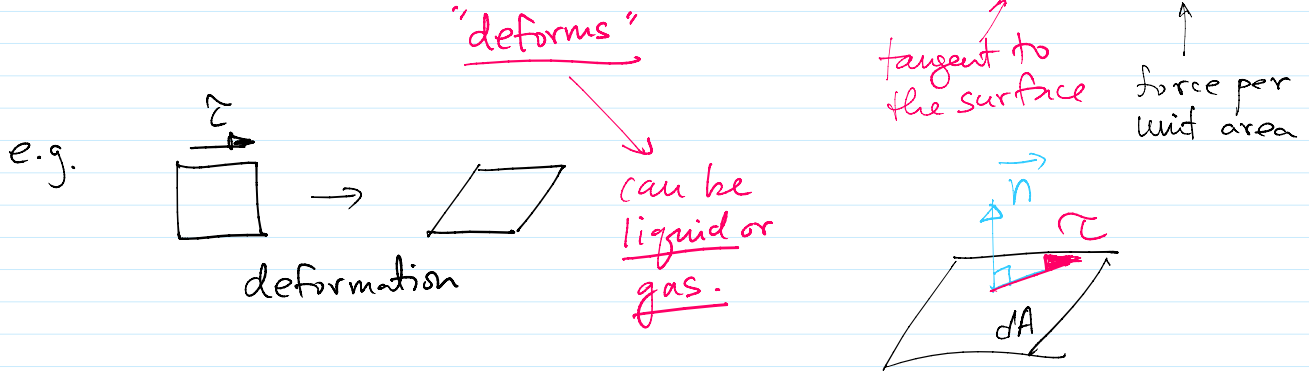 "deforms"
tangent to
the surface
force per
unit area
e.g.
τ
deformation
can be
liquid or
gas.
n
τ
dA